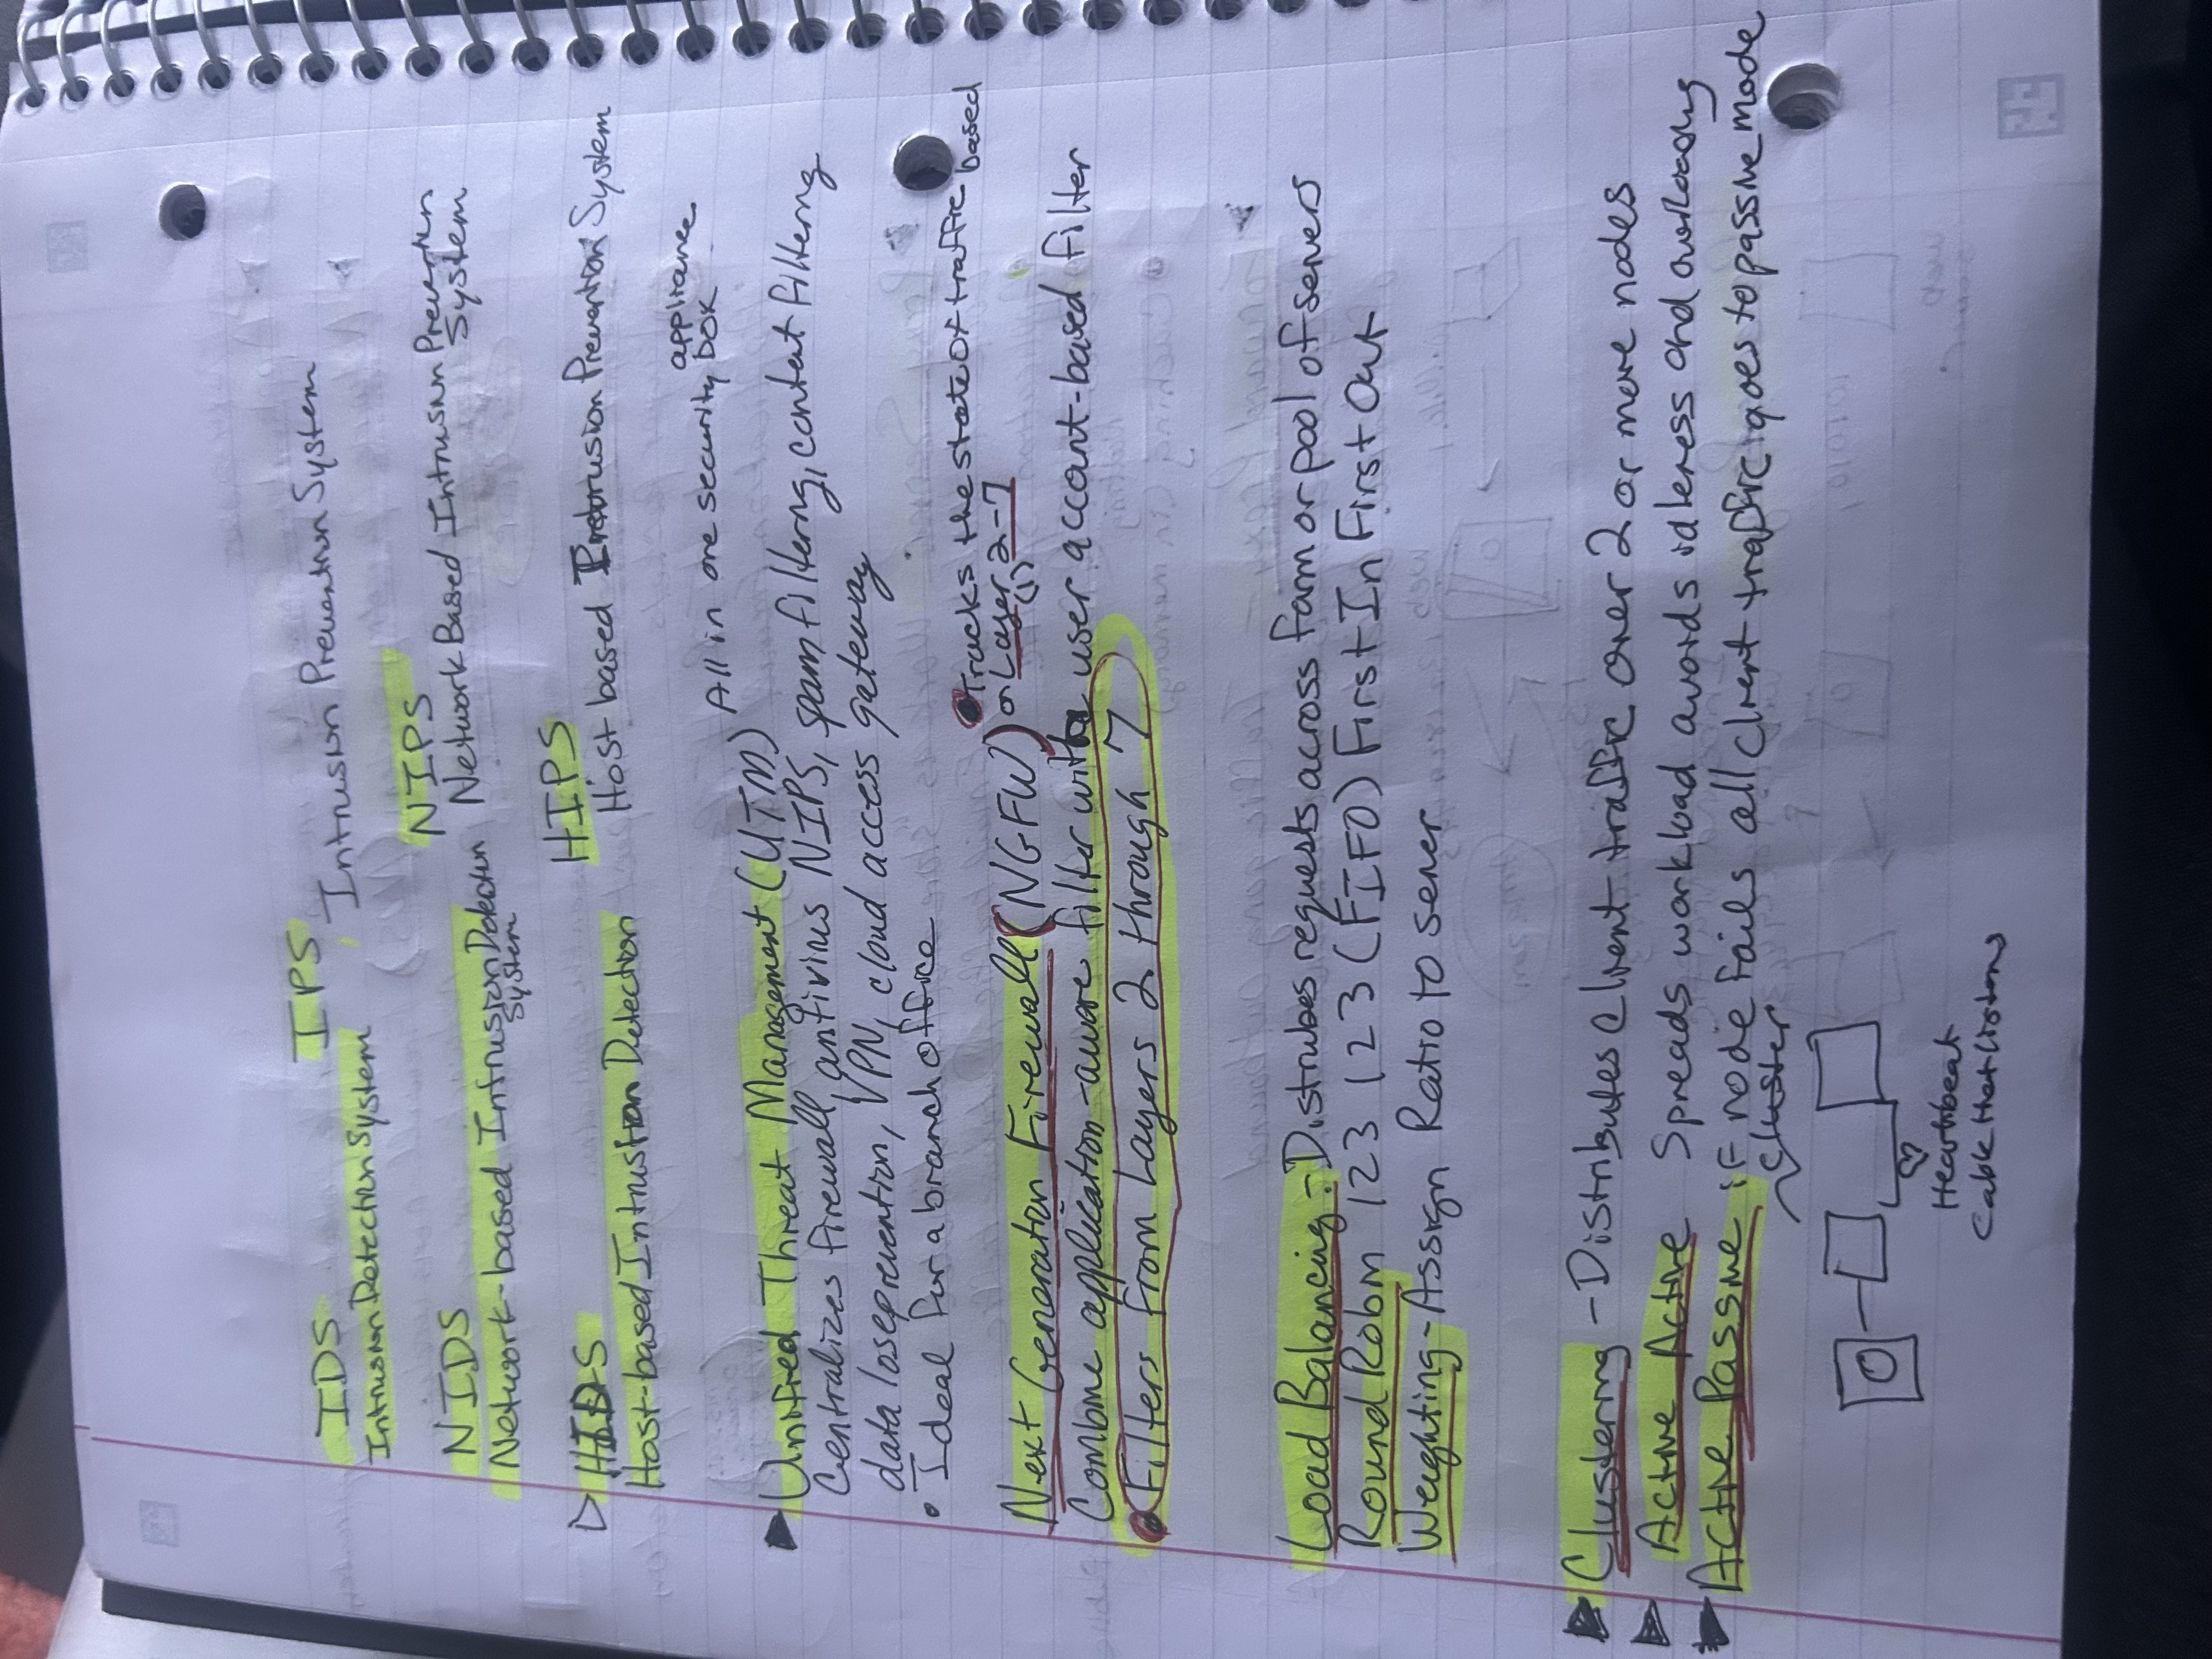 IDS
Intrusion Detection System
IPS
Intrusion Prevention System
NIDS
Network-based Intrusion Detection
System
NIPS
Network Based Intrusion Prevention
System
HIDS
Host-based Intrustion Detection
HIPS
Host based Intrusion Prevention System
appliance
All in one security box
Unified Threat Management (UTM)
Centralizes firewall, antivirus NIPS, spam filterng, content filterng
data loseprevention, VPN, cloud access gateway
• Ideal for a branch office
• Tracks the state of traffic based
on Layer 2-7
(1)
Next Generation Firewall (NGFW)
Combine application-aware filter with user account-based filter
• Filters from Layers 2 through 7
Load Balancing - Distrubes requests across farm or pool of servers
Round Robin 123 123 (FIFO) First In First Out
Weighting - Assign Ratio to server
Clustering - Distributes client traffic over 2 or more nodes
Active Active Spreads workload avoids idleness and overloading
Active Passive if node fails all client traffic goes to passive mode
cluster
Heartbeat
Cable that listens